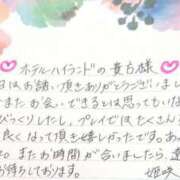 ホテルハイランドの貴方様
日はお誘い頂きありがとうございまし
またお会いできるとは思ってもいな
びっくりしたし、プレイではたくさん
良くなって頂き嬉しかったです。あ
、またお時間が合いましたら、遠
お待ちしております。
姫咲